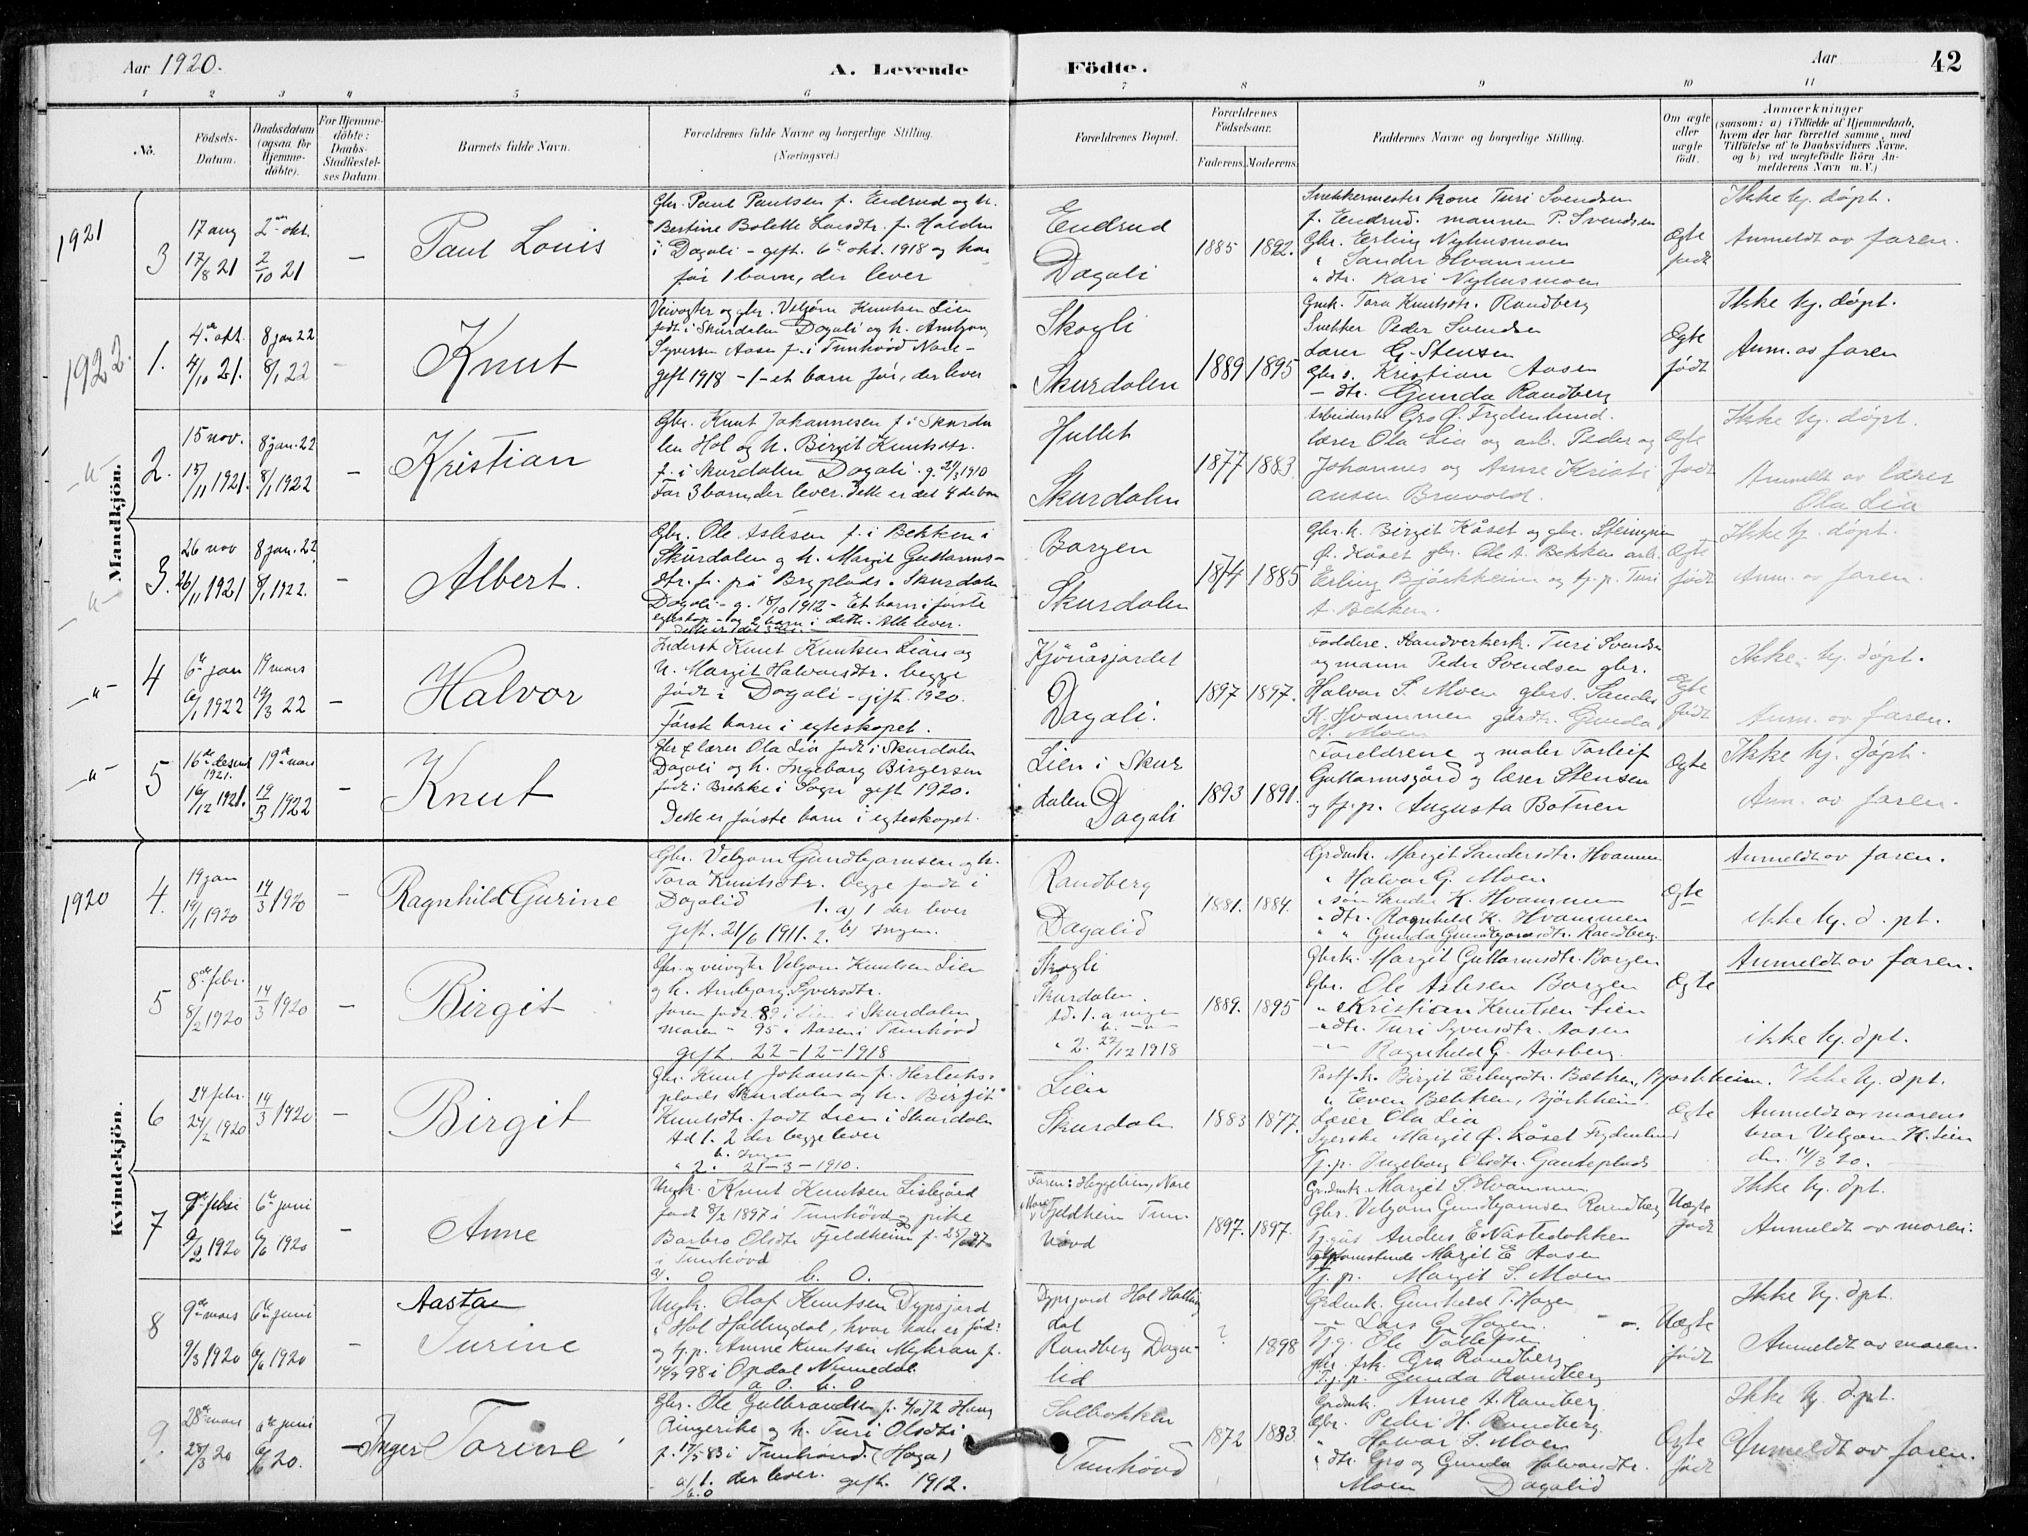 Aar 1920.
A. Levende Födte.
Aar
42
1 2 3 4 5 6 7 8 9 10 11
No.
Födsels-Datum.
Daabsdatum (ogsaa for Hjemmedöbte).
For Hjemmedöbte: Daabs-Stadfæstelses Datum.
Barnets fulde Navn.
Forældrenes fulde Navne og borgerlige Stilling.
(Næringsvei.)
Forældrenes Bopæl.
Forældrenes Födselsaar.
Faderens. Moderens.
Faddernes Navne og borgerlige Stilling.
Om ægte eller uægte födt.
Anmærkninger
(saasom: a) i Tilfælde af Hjemmedaab, hvem der har forrettet samme, med Tilföielse af to Daabsvidners Navne, og b) ved uægtefödte Börn Anmelderens Navn m. V.)
Mandkjön.
1921
3
17 aug
17/8 21
2 okt.
2/10 21
–
Paul Louis
Gbr. Paul Paulsen f. Endrud og h.
Bertine Bolette Larsdtr. f. Halden
i Dagali – gift. 6te okt. 1918 og har
før 1 barn, der lever
Endrud
Dagali
1885
1892.
Snekkermester kone Turi Svendsen
f. Endrud. mannen P. Svendsen
Gbr. Erling Nyhusmoen
" Sander Hvammen
" dtr. Kari Nyhusmoen
Ægte født
Ikke hj. døpt.
Anmeldt av faren.
1922.
1.
4de okt.
4/10 21.
8 jan 22
8/1 22
–
Knut
Veivogter og gbr. Velgjøm Knutsen Lien
født i Skurdalen Dagali og h. Ambjørg
Syversen Aasen f. i Tunhövd Nore –
gift 1918 – 1 – et barn før, der lever
Skogli
Skurdalen
1889
1895
Gmk. Tora Knutsdtr. Randberg
Snekker Peder Svendsen
Lærer G. Stensen
Gbr s. Kristian Aasen
– dtr. Gunda Randberg
Egte født
Ikke hj. døpt.
Anm. av faren
– " –
2.
15 nov.
15/11 1921.
8 jan. 22
8/1 1922
–
Kristian
Gbr. Knut Johannesen f. i Skurda
len Hol og h. Birgit Knutsdtr.
f. i Skurdalen Dagali. g. 21/3 1910
Før 3 barn, der lever. Dette er det 4de barn
Hullet
Skurdalen
1877
1883
Arbeiderske Gro Ø. Frydenlund.
lærer Ola Lia og arb. Peder og
Johannes og Anne Kristi
ansen Bravold.
Egte født
Ikke hj. døpt.
Anmeldt av lærer
Ola Lia
– " –
3.
26 nov
26/11 1921
8 jan. 22
8/1 1922.
–
Albert.
Gbr. Ole Aslesen f. i Bekken i
Skurdalen og h. Margit Guttorms-
dtr. f. på Bryplads i Skurdalen
Dagali – g. 18/10 1912 – Et barn i første
egteskap – og 2 barn i dette. Alle lever.
Borgen
Skurdalen
1874
1885
Gbr. h. Birgit Kåset og gbr. Steingrim
Ø. Kåset gbr. Ole A. Bekken arb.
Erling Bjørkheim og tj. p. Turi
A. Bekken.
Egte født
Ikke hj. døpt.
Anm. av faren.
– " –
4
6te jan
6/1 1922
19 mars
19/3 22
–
Halvor
Inderst Knut Knutsen Lien og
h. Margit Halvorsdtr. begge
født i Dagali – gift. 1920.
Første barn i egteskapet.
Kjönåsjordet
Dagali.
1897
1897.
Foreldre. Handverkerk. Turi Svendsen
og mann Peder Svendsen gbr.
Halvor S. Moen gbrs. Sander
K. Hvammen gbrdtr. Gunda
H. Moen
Egte født
Ikke hj. døpt.
Anm. av faren.
– " –
5
16de desem
1921.
16/12 1921.
19de mars
19/3 1922
–
Knut
Gbr & lærer Ola Lia født i Skurdalen
Dagali og h. Ingeborg Birgersen
født i Brekke i Sogn gift 1920.
Dette er første barn i egteskapet.
Lien i Skur
dalen Dagali
1893
1891.
Foreldrene og maler Torleif
Guttormsgård og lærer Stensen
og tj. p. Augusta Botnen
Egte
Ikke hj. døpt.
Anm. av faren.
Kvindekjön.
1920
4.
19 jan
19/1 1920
14/3 1920
–
Ragnhild Gurine
Gbr. Velgom Gundbjørnsen og h.
Tora Knutsdtr. begge født i
Dagalid
1. a) 1 der lever
gift. 21/6 1911. 2. b) Ingen.
Randberg
Dagalid
1881.
1884.
Grdmk. Margit Sandersdtr. Hvammen
" Halvor G. Moen
" søn Sander K. Hvammen
" dtr. Ragnhild K. Hvammen
" " Gunda Gundbjørnsdtr. Randberg.
Egte
Anmeldt av faren.
ikke hj. d. pt.
5
8de febr.
8/2 1920
14/3 1920
–
Birgit
Gbr. og veivogter Velgom Knutsen Lien
og h. Ambjørg Syversdtr.
faren født 89 i Lien i Skurdalen
moren " 95 i Aasen i Tunhövd
gift. 22-12-1918
Skogli
Skurdalen.
Ad. 1. a ingen
b. – " –
" 2. 22/12 1918
1889.
1895
Gbrk. Margit Guttormsdtr. Borgen
Gbr. Ole Aslesen Borgen
" Kristian Knutsen Lien
– dtr. Turi Syversdtr. Aasen
– " – Ragnhild G. Aasberg.
Ægte
Anmeldt av faren.
ikke hj. dpt.
6
24 febr.
24/2 1920
14/3 1920
–
Birgit
Gbr. Knut Johansen f. Herleiks-
plads Skurdalen og h. Birgit
Knutsdtr. født Lien i Skurdalen
Ad 1. 2 der begge lever
b. Ingen
" 2. 21-3-1910.
Lien
Skurdalen
1883
1877.
Postf. h. Birgit Erlingsdtr. Bekken, Bjørkheim.
" Even Bekken, Bjørkheim.
Lærer Ola Lia
Syerske Margit Ø. Kåset Frydenlund
Tj. p. Ingeborg Olsdtr. Ganteplads
Ægte
Ikke hj. dpt.
Anmeldt av morens
bror Velgom K. Lien
den 14/3 20.
7
9de febr
9/2 1920
6te juni
6/6 1920
–
Anne
Ungk. Knut Knutsen Lislegård
født 8/2 1897 i Tunhövd og pike
Barbro Olsdtr Fjeldheim f. 25/6 97
i Tunhövd
a. 0 b. 0.
Faren: Heggelien, Nore
Mor: Fjeldheim Tun-
hövd
1897.
1897.
Grdmk Margit S. Hvammen
Gbr. Velgom Gundbjørnsen Randberg
Tjgut Anders E. Nåstedokken
Margit E. Aasen
Tj. p. Margit S. Moen
Uægte født
Ikke hj. dpt.
Anmeldt av moren.
8
9de mars
9/3 1920
6te juni
6/6 1920
–
Aasta
Turine
Ungk. Olaf Knutsen Dypsjord
i Hol Hallingdal, hvor han er född
og tj. p. Anne Knutsen Myhran f.
14/9 98 i Opdal Numedal.
a 0. b. 0
Dypsjord Hol Halling
dal
Randberg Daga-
lid
?
1898
Grdmk. Gunhild T. Hagen
– " – Lars G. Hagen. – " –.
Tj. g. Ole Tollefsen
gbr. frk. Gro Randberg
Tj. p. Gunda Randberg
Uægte født
Ikke hj. dpt.
Anmeldt av moren.
9.
28de mars
28/3 20
6te juni
6/6 20.
–
Inger Torine
Gbr. Ole Gulbrandsen f. 4/10 72 Haug
Ringerike og h. Turi Olsdtr
f. 17/5 83 i Tunhövd (Haga)
a/ 1. der lever. gift. 1912.
b. 0
Solbakken
Tunhövd
1872
1883.
Grdmk. Anne A. Randberg.
Gbr. Peder H. Randberg.
" Halvor S. Moen
" dtr. Gro og Gunda Halvorsdtr.
Moen Dagalid
Egte født
Ikke hj. dpt.
Anmeldt av faren.